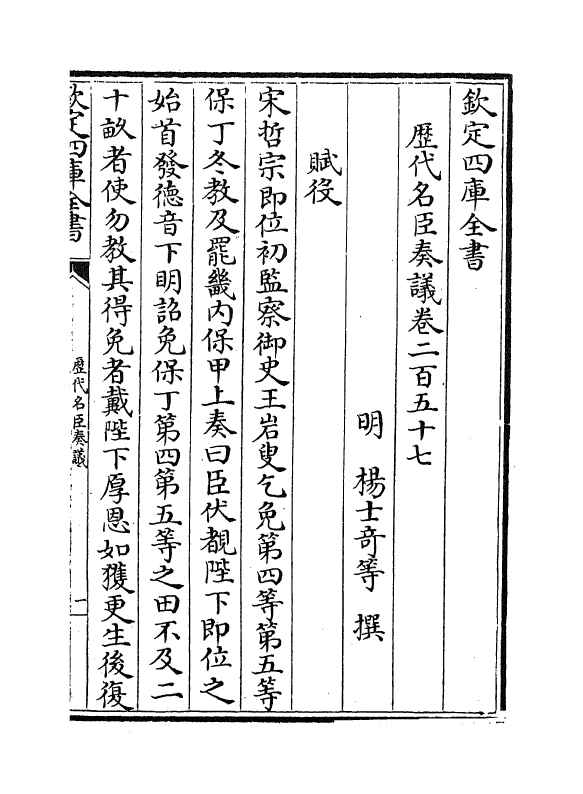 欽定四庫全書
歴代名臣奏議卷二百五十七
明 楊士竒等 撰
賦役
宋哲宗即位初監察御史王岩叟乞免第四等第五等
保丁冬教及罷畿内保甲上奏曰臣伏覩陛下即位之
始首發德音下明詔免保丁第四第五等之田不及二
十畝者使勿教其得免者戴陛下厚恩如獲更生後復
欽定四庫全書
歴代名臣奏議
一